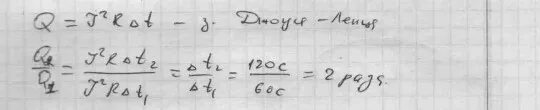 Q = J²RΔt – з. Джоуля-Ленца
Q₂/Q₁ = J²RΔt₂/J²RΔt₁ = Δt₂/Δt₁ = 120с/60с = 2 раза.